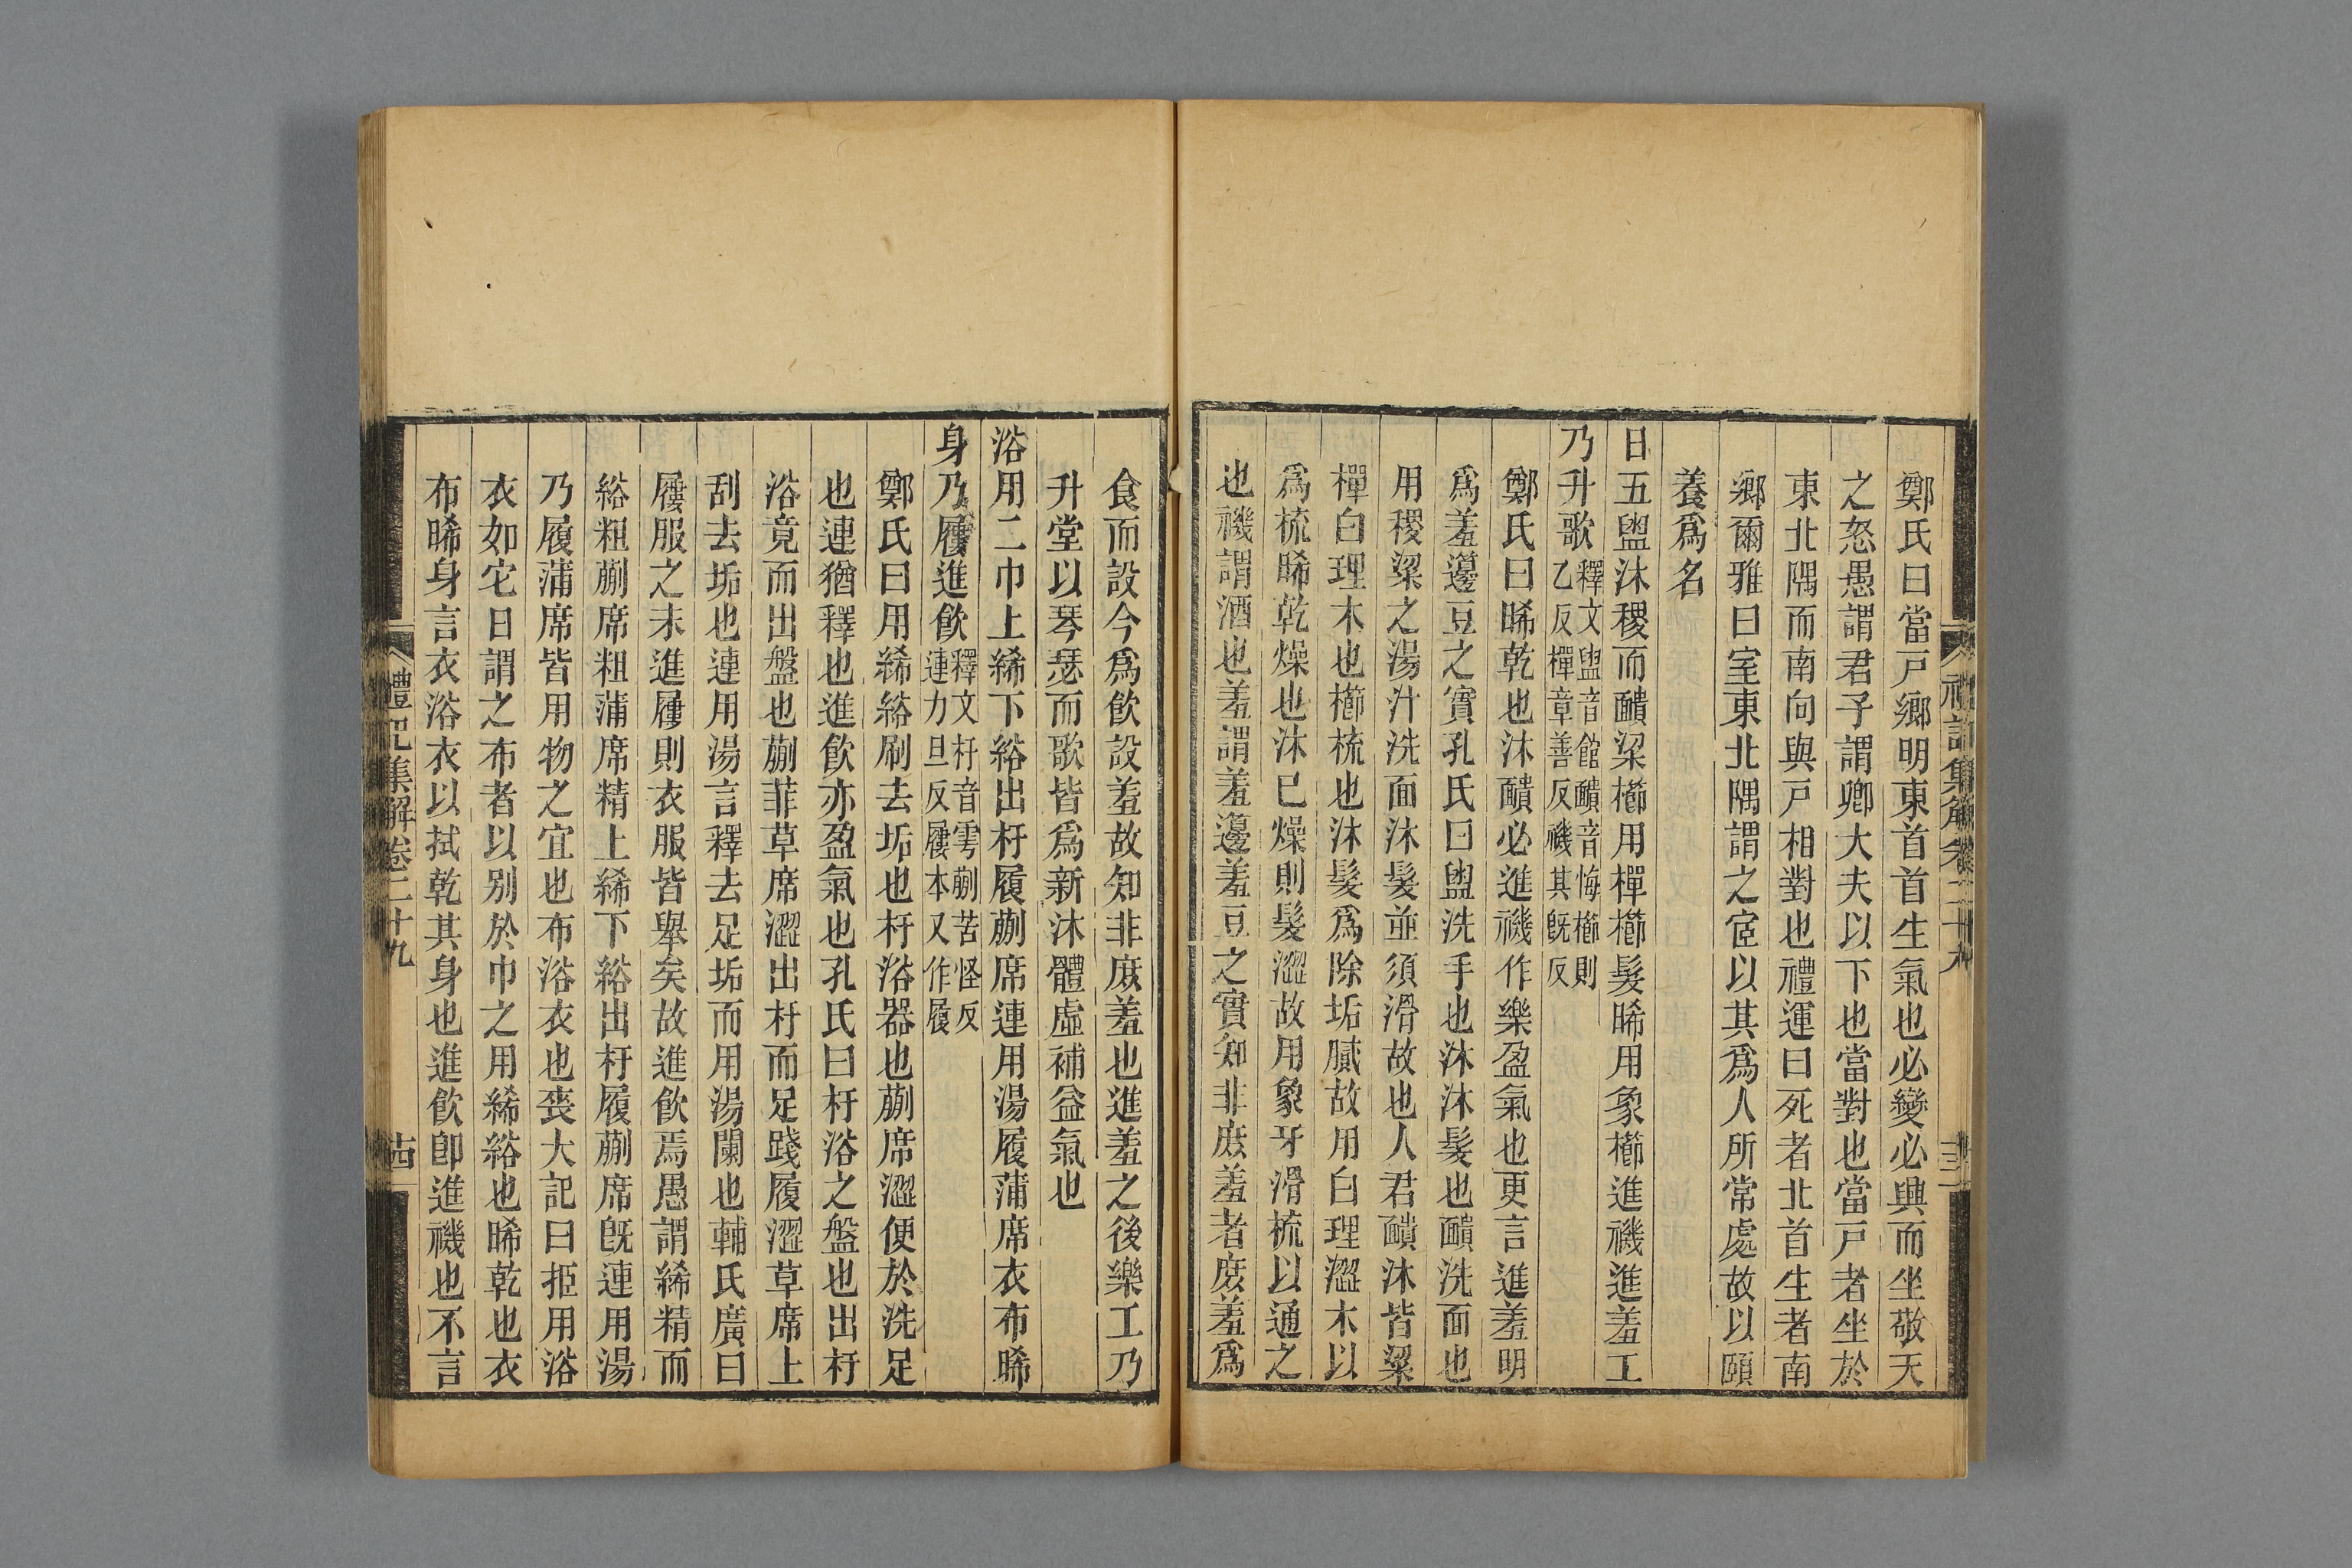 鄭氏曰當戸鄉明東首首生氣也必變必興而坐敬天
之怒愚謂君子謂卿大夫以下也當對也當戸者坐於
東北隅而南向與戸相對也禮運曰死者北首生者南
鄉爾雅曰室東北隅謂之宧以其爲人所常處故以頤
養爲名
日五盥沐稷而靧梁櫛用樿櫛髮晞用象櫛進禨進羞工
乃升歌釋文盥音館靧音悔櫛則
乙反樿章善反禨其旣反
鄭氏曰晞乾也沐靧必進禨作樂盈氣也更言進羞明
爲羞籩豆之實孔氏曰盥洗手也沐沐髮也靧洗面也
用稷粱之湯汁洗面沐髮並須滑故也人君靧沐皆粱
樿白理木也櫛梳也沐髮爲除垢膩故用白理澀木以
爲梳晞乾燥也沐已燥則髮澀故用象牙滑梳以通之
也禨謂酒也羞謂羞籩羞豆之實知非庶羞者庶羞爲
禮記集解卷二十九
十三
食而設今爲飮設羞故知非庶羞也進羞之後樂工乃
升堂以琴瑟而歌皆爲新沐體虛補益氣也
浴用二巾上絺下綌出杅履蒯席連用湯履蒲席衣布晞
身乃屨進飮釋文杅音雩蒯苦怪反
連力旦反屨本又作履
鄭氏曰用絺綌刷去垢也杅浴器也蒯席澀便於洗足
也連猶釋也進飮亦盈氣也孔氏曰杅浴之盤也出杅
浴竟而出盤也蒯菲草席澀出杅而足踐履澀草席上
刮去垢也連用湯言釋去足垢而用湯闌也輔氏廣曰
屨服之末進屨則衣服皆舉矣故進飮焉愚謂絺精而
綌粗蒯席粗蒲席精上絺下綌出杅履蒯席旣連用湯
乃履蒲席皆用物之宜也布浴衣也喪大記曰挋用浴
衣如它日謂之布者以别於巾之用絺綌也晞乾也衣
布晞身言衣浴衣以拭乾其身也進飮卽進禨也不言
禮記集解卷二十九
十四